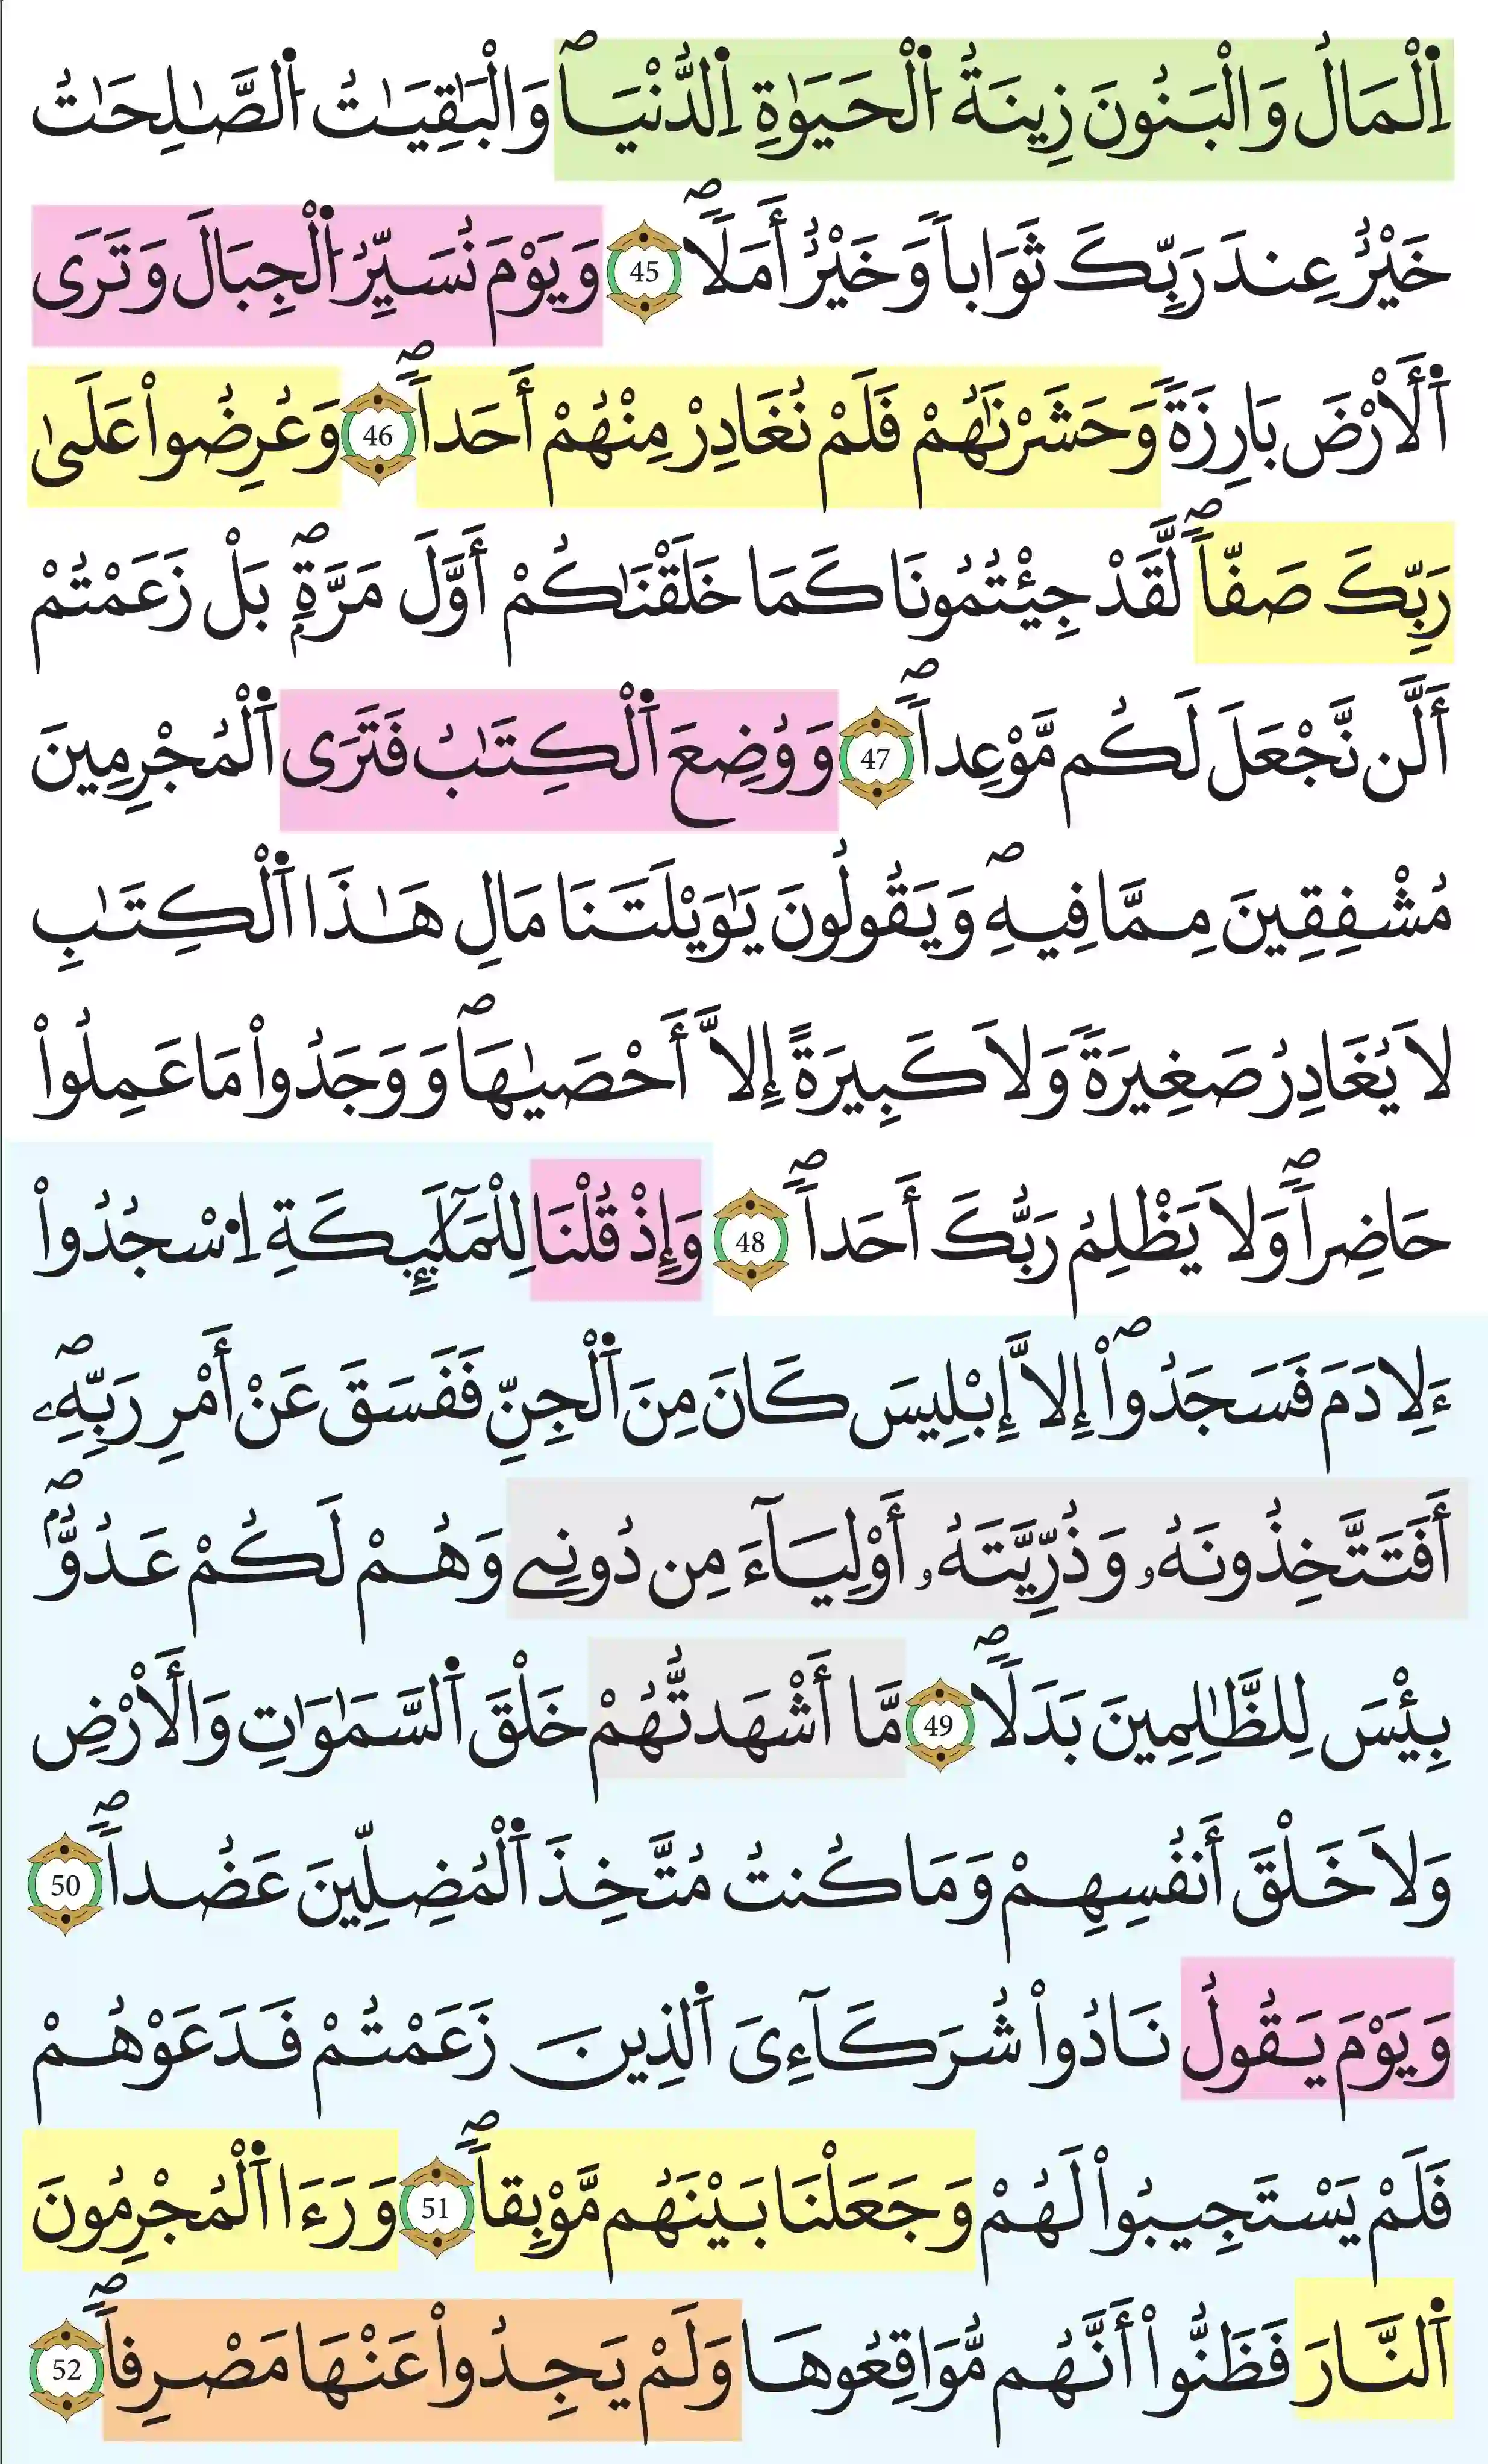 اِ۬لْمَالُ وَالْبَنُونَ زِينَةُ اُ۬لْحَيَوٰةِ اِ۬لدُّنْي۪اۖ وَالْبَٰقِيَٰتُ اُ۬لصَّٰلِحَٰتُ
خَيْرٌ عِندَ رَبِّكَ ثَوَاباٗ وَخَيْرٌ أَمَلاٗۖ 45 وَيَوْمَ نُسَيِّرُ اُ۬لْجِبَالَ وَتَرَى
اَ۬لَارْضَ بَارِزَةٗ وَحَشَرْنَٰهُمْ فَلَمْ نُغَادِرْ مِنْهُمْ أَحَداٗۖ 46 وَعُرِضُواْ عَلَىٰ
رَبِّكَ صَفّاٗۖ لَّقَدْ جِئْتُمُونَا كَمَا خَلَقْنَٰكُمْ أَوَّلَ مَرَّةِۢۖ بَلْ زَعَمْتُمْ
أَلَّن نَّجْعَلَ لَكُم مَّوْعِداٗۖ 47 وَوُضِعَ اَ۬لْكِتَٰبُ فَتَرَى اَ۬لْمُجْرِمِينَ
مُشْفِقِينَ مِمَّا فِيهِۖ وَيَقُولُونَ يَٰوَيْلَتَنَا مَالِ هَٰذَا اَ۬لْكِتَٰبِ
لَا يُغَادِرُ صَغِيرَةٗ وَلَا كَبِيرَةً إِلَّا أَحْصَيٰهَاۖ وَوَجَدُواْ مَا عَمِلُواْ
حَاضِراٗۖ وَلَا يَظْلِمُ رَبُّكَ أَحَداٗۖ 48 وَإِذْ قُلْنَا لِلْمَلَٰٓئِكَةِ اِ۟سْجُدُواْ
ءَلِادَمَ فَسَجَدُواْۖ إِلَّا إِبْلِيسَ كَانَ مِنَ اَ۬لْجِنِّ فَفَسَقَ عَنْ أَمْرِ رَبِّهِۦۖ
أَفَتَتَّخِذُونَهُۥ وَذُرِّيَّتَهُۥ أَوْلِيَآءَ مِن دُونِے وَهُمْ لَكُمْ عَدُوُّۢۖ
بِئْسَ لِلظَّٰلِمِينَ بَدَلاٗۖ 49 مَّا أَشْهَدتُّهُمْ خَلْقَ اَ۬لسَّمَٰوَٰتِ وَالَارْضِ
وَلَا خَلْقَ أَنفُسِهِمْ وَمَا كُنتُ مُتَّخِذَ اَ۬لْمُضِلِّينَ عَضُداٗۖ 50
وَيَوْمَ يَقُولُ نَادُواْ شُرَكَآءِىَ اَ۬لذِينَ زَعَمْتُمْ فَدَعَوْهُمْ
فَلَمْ يَسْتَجِيبُواْ لَهُمْ وَجَعَلْنَا بَيْنَهُم مَّوْبِقاٗۖ 51 وَرَءَا اَ۬لْمُجْرِمُونَ
اَ۬لنَّارَ فَظَنُّواْ أَنَّهُم مُّوَاقِعُوهَا وَلَمْ يَجِدُواْ عَنْهَا مَصْرِفاٗۖ 52